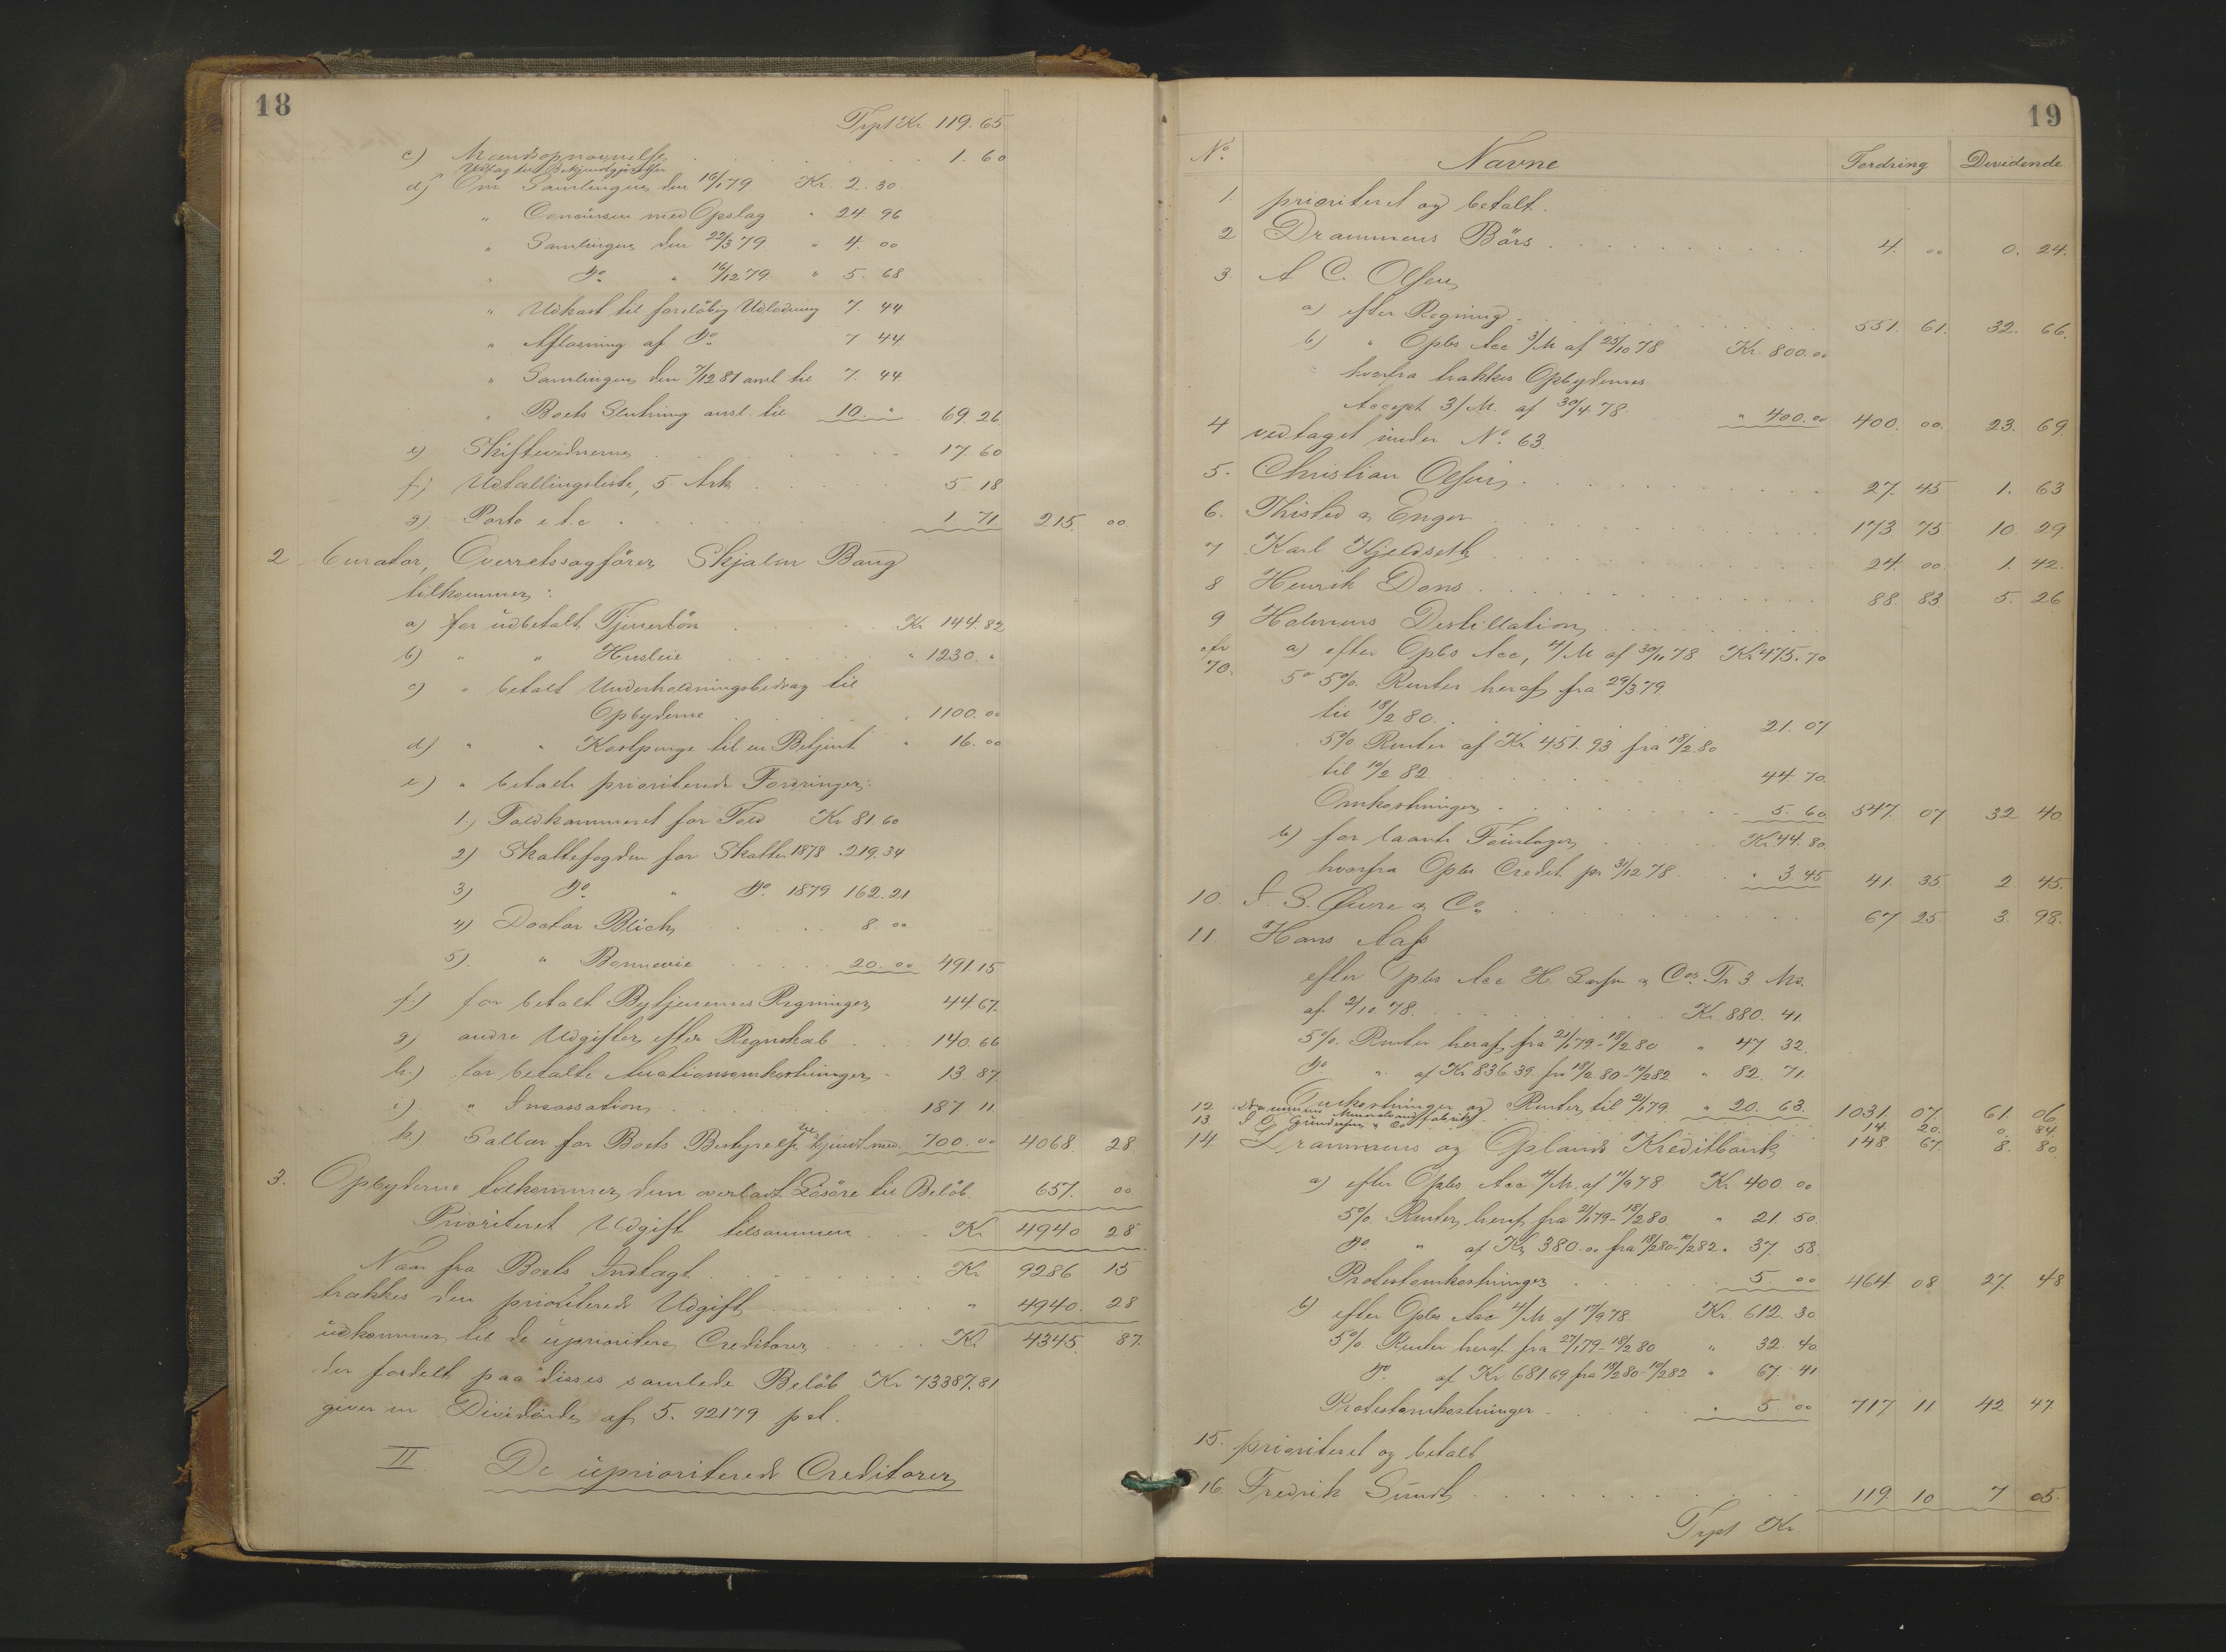 18
Trpt Kr. 119. 65
c) Mandsopnævnelse . . . 1. 60
Udtog til Bekjendtgjørelse
d) Om Samlingen den 16/1 79 Kr. 2. 30
" med Opslag " 24. 96
" Samlingen den 22/3 79 " 4. 00
" Do " 16/12 79 " 5. 68
" Udkast til foreløbig Udlodning 7. 44
" Aflæsning af Do 7 44
" Samlingen den 7/12 81 ansl. til 7. 44
" Boets Slutning ansl. til 10. " 69. 26
e) Skiftevidnerne 17. 60
f) Udtællingsliste, 5 Ark 5. 18
g) Porto e. t. c . 1. 71 215. 00
2 Curator, Overretssagfører Skjalm Bang
tilkommer:
a) for udbetalt Tjenerløn Kr 144. 82
b) " " Husleie " 1230. "
c) " betalt Underholdningsbidrag til
Opbyderne . 1100. 00
d) " " Kostpenge til en Betjent " 16. 00
e) " betalte prioriterede Fordringer:
1) Toldkammeret for Told Kr 81. 60
2) Skattefogden for Skatter 1878 . 219. 34
3) Do " Do 1879 162. 21
4) Doctor Blich 8 00
5) " Bonnevie 20. 00 491. 15
f.) for betalt Bytjenernes Regninger 44 67.
g) andre Udgifter efter Regnskab . . 140. 66
h.) for betalte Auctionsomkostninger . 13. 87.
i) " Incassation 187 11
k) Sallær for Boets Bestyrelse 700. 00 4068. 28.
3. Opbyderne tilkommer dem overladt Løsøre til Beløb. 657. 00
Prioriteret Udgift tilsammen . . . Kr 4940 28
Naar fra Boets Indtægt Kr 9286 15
trækkes den prioriterede Udgift " 4940. 28
udkommer til de upriotere Creditorer Kr 4345. 87.
der fordelt paa disses samlede Beløb Kr 73387. 81
giver en Dividende af 5. 92179 pct.
II. De uprioriterede Creditorer
19
No. Navne Fordring Devidende
1. prioriteret og betalt.
2 Drammens Börs 4. 00 0. 24.
3. A C. Olsen
a) efter Regning . 551. 61. 32. 66.
b) " Opbs Acc 3/M af 23/10 78 Kr. 800. 00
hvorfra trækkes Opbydernes
Accept 3/M. af 30/4. 78. " 400. 00 400. 00. 23. 69.
4 vedtaget under No. 63.
5. Christian Olsen 27. 45 1. 63
6. Thisted & Enger 173 75 10. 29
7 Karl Kjeldseth 24. 00 1. 42.
8 Henrik Dons 88. 83 5. 26
9 Holmens Destillation
cfr a) efter Opbs Acc, 4/M af 30/11 78 Kr 475. 70
70. 5% Renter heraf fra 29/3 79
til 18/2 80. 21. 07
5% Renter af Kr 451. 93 fra 18/2 80
til 10/2 82 44. 70.
Omkostninger 5. 60 547. 07 32 40.
b) for laante Foustager Kr. 44. 80.
hvorfra Opbs Credit pr 31/12 78 . " 3. 45 41. 35 2. 45.
10. J. S. Øwre & Co 67 25. 3. 98.
11. Hans Aass
efter Opbs Acc H. Larsen & Cos Tr. 3. Ms.
af 2/10. 78. Kr. 880. 41.
5% Renter heraf fra 21/1 79 - 18/2 80 " 47 32.
Do " af Kr 836 39 fra 18/2 80 - 10/2 82 " 82. 71.
Omkostninger og Renter til 21/1 79. " 20. 63. 1031. 07. 61. 06.
12 Drammens Mineralvandfabrik 14. 20. 0. 84.
13. J O. Gundersen & Co 148 67. 8. 80.
14. Drammens og Oplands Kreditbank
a) efter Opbs Acc 4/M. af 7/9 78 Kr 400. 00
5% Renter heraf fra 21/1 79 - 18/2 80. " 21. 50.
Do " af Kr 380. 00 fra 18/2 80 - 10/2 82 " 37. 58
Protestomkostninger 5. 00 464 08 27. 48
b) efter Opbs Acc 4/M af 17/9 78 Kr 612. 30
5% Renter heraf fra 27/1 79 - 18/2 80 " 32. 40.
Do af Kr 681 69 fra 18/2 80 - 10/2 82 " 67. 41
Protestomkostninger . " 5. 00 717 11 42 47.
15. prioriteret og betalt
16. Fredrik Sundt 119 10 7 05.
Trpt Kr.